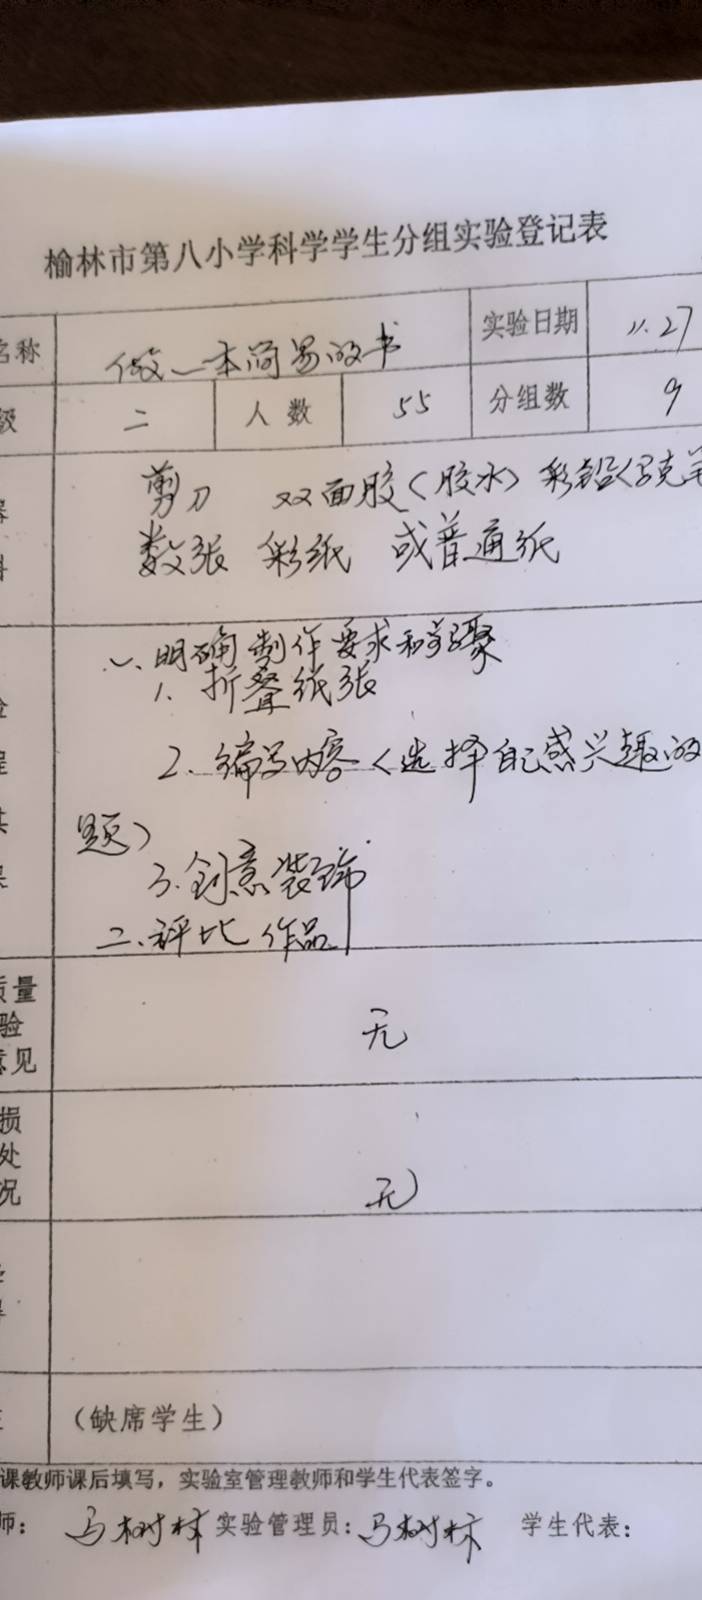 榆林市第八小学科学学生分组实验登记表
名称 做一本简易的书 实验日期 11.27
级 二 人数 55 分组数 9
剪刀 双面胶（胶水）彩铅
数张 彩纸 或普通纸
一、明确制作要求和步骤
1. 折叠纸张
2. 编写内容（选择自己感兴趣的
题）
3. 创意装饰
二、评比作品
质量
验
意见
无
损
处
况
无
（缺席学生）
课教师课后填写，实验室管理教师和学生代表签字。
师： 马树林 实验管理员：马树林 学生代表：